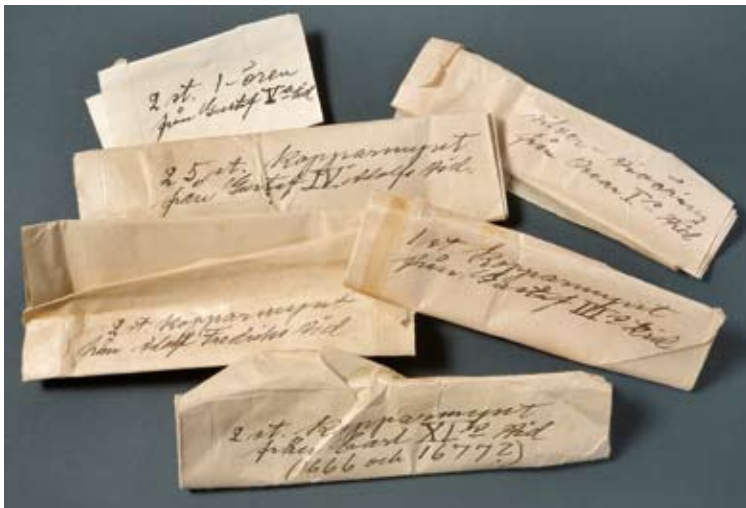 2 st. 1-ören
från Gustaf V:s tid
25 st. kopparmynt
från Gustaf IV Adolfs tid.
silver-
från Oscar I:s tid
1 st kopparmynt
från Gustaf III:s tid
2 st kopparmynt
från Adolf Fredriks tid
2 st. kopparmynt
från Carl XI:s tid
(1666 och 1677?)